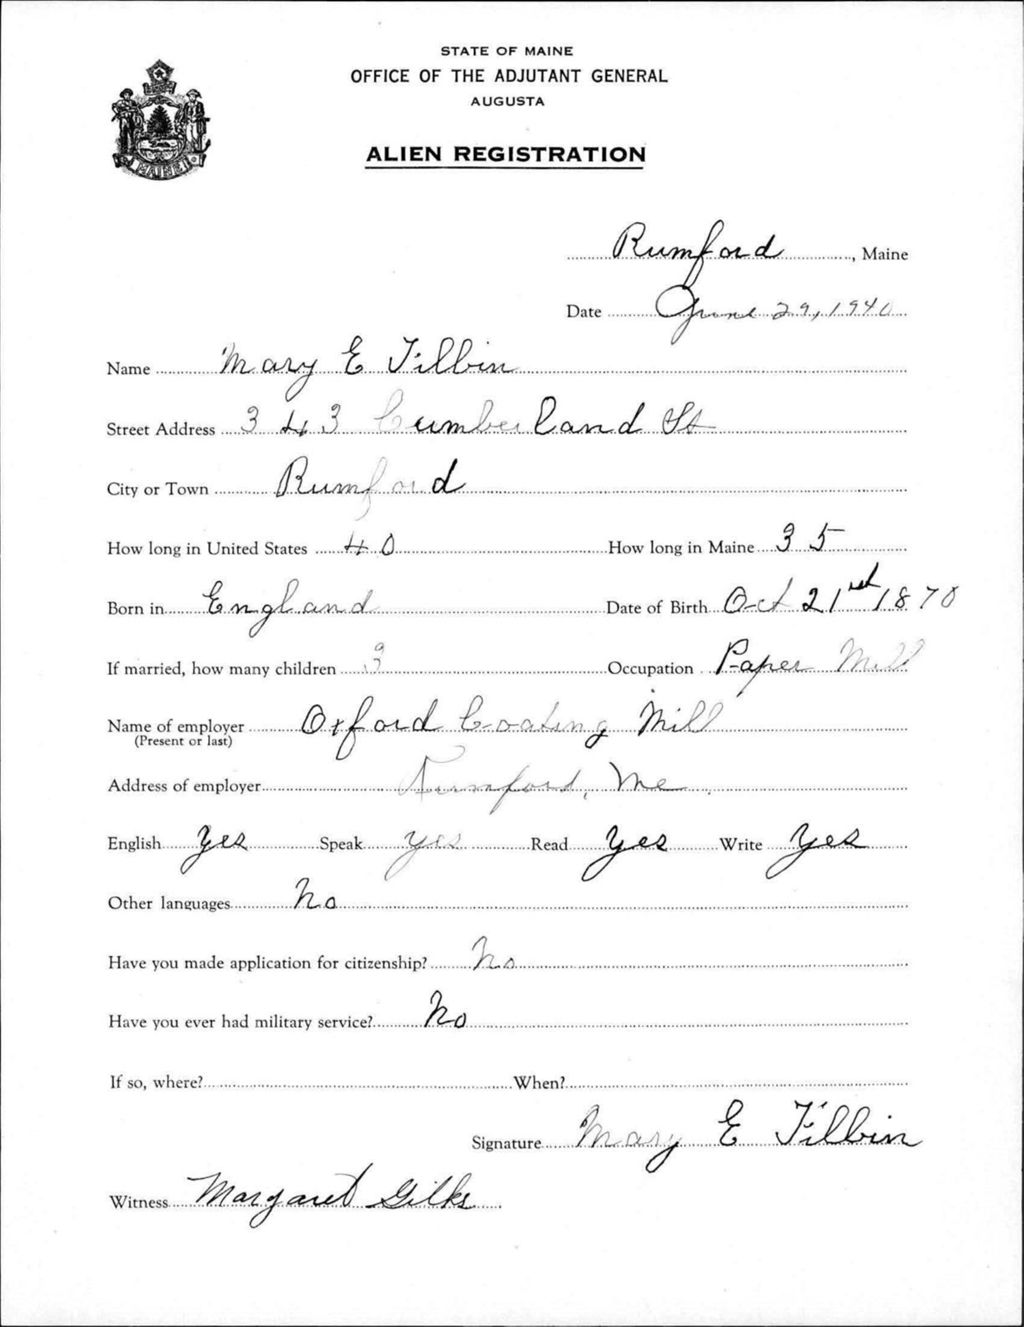 STATE OF MAINE
OFFICE OF THE ADJUTANT GENERAL
AUGUSTA
ALIEN REGISTRATION
MAINE
Rumford, Maine
Date June 29, 1940
Name Mary E Filbin
Street Address 343 Cumberland St
City or Town Rumford
How long in United States 40 How long in Maine 35
Born in England Date of Birth Oct 21st 1870
If married, how many children 3 Occupation Paper Mill
Name of employer Oxford Coating Mill
(Present or last)
Address of employer Rumford, Me.
English Yes Speak yes Read Yes Write Yes
Other languages No
Have you made application for citizenship? No
Have you ever had military service? No
If so, where? When?
Signature Mary E Filbin
Witness Margaret Gilks